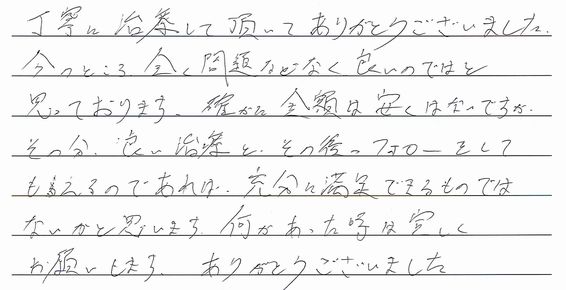 丁寧に治療して頂いてありがとうございました。
今のところ、全く問題などなく良いのではと
思っております。確かに金額は安くはないですが、
その分、良い治療と、その後のフォローをして
もらえるのであれば、充分に満足できるものでは
ないかと思います。何かあった時は宜しく
お願いします。ありがとうございました